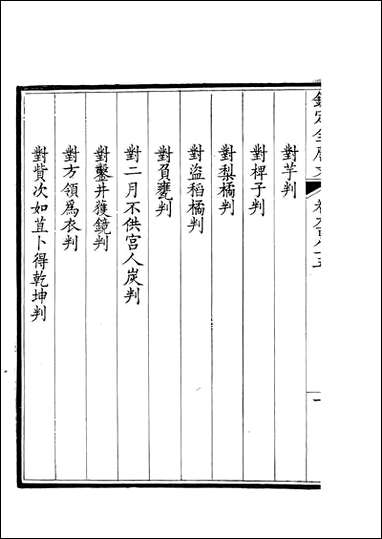 對芋判
對椑子判
對梨橘判
對盜稻橘判
對負甕判
對二月不供宮人炭判
對鑿井獲鏡判
對方領爲衣判
對貲次如苴卜得乾坤判
一